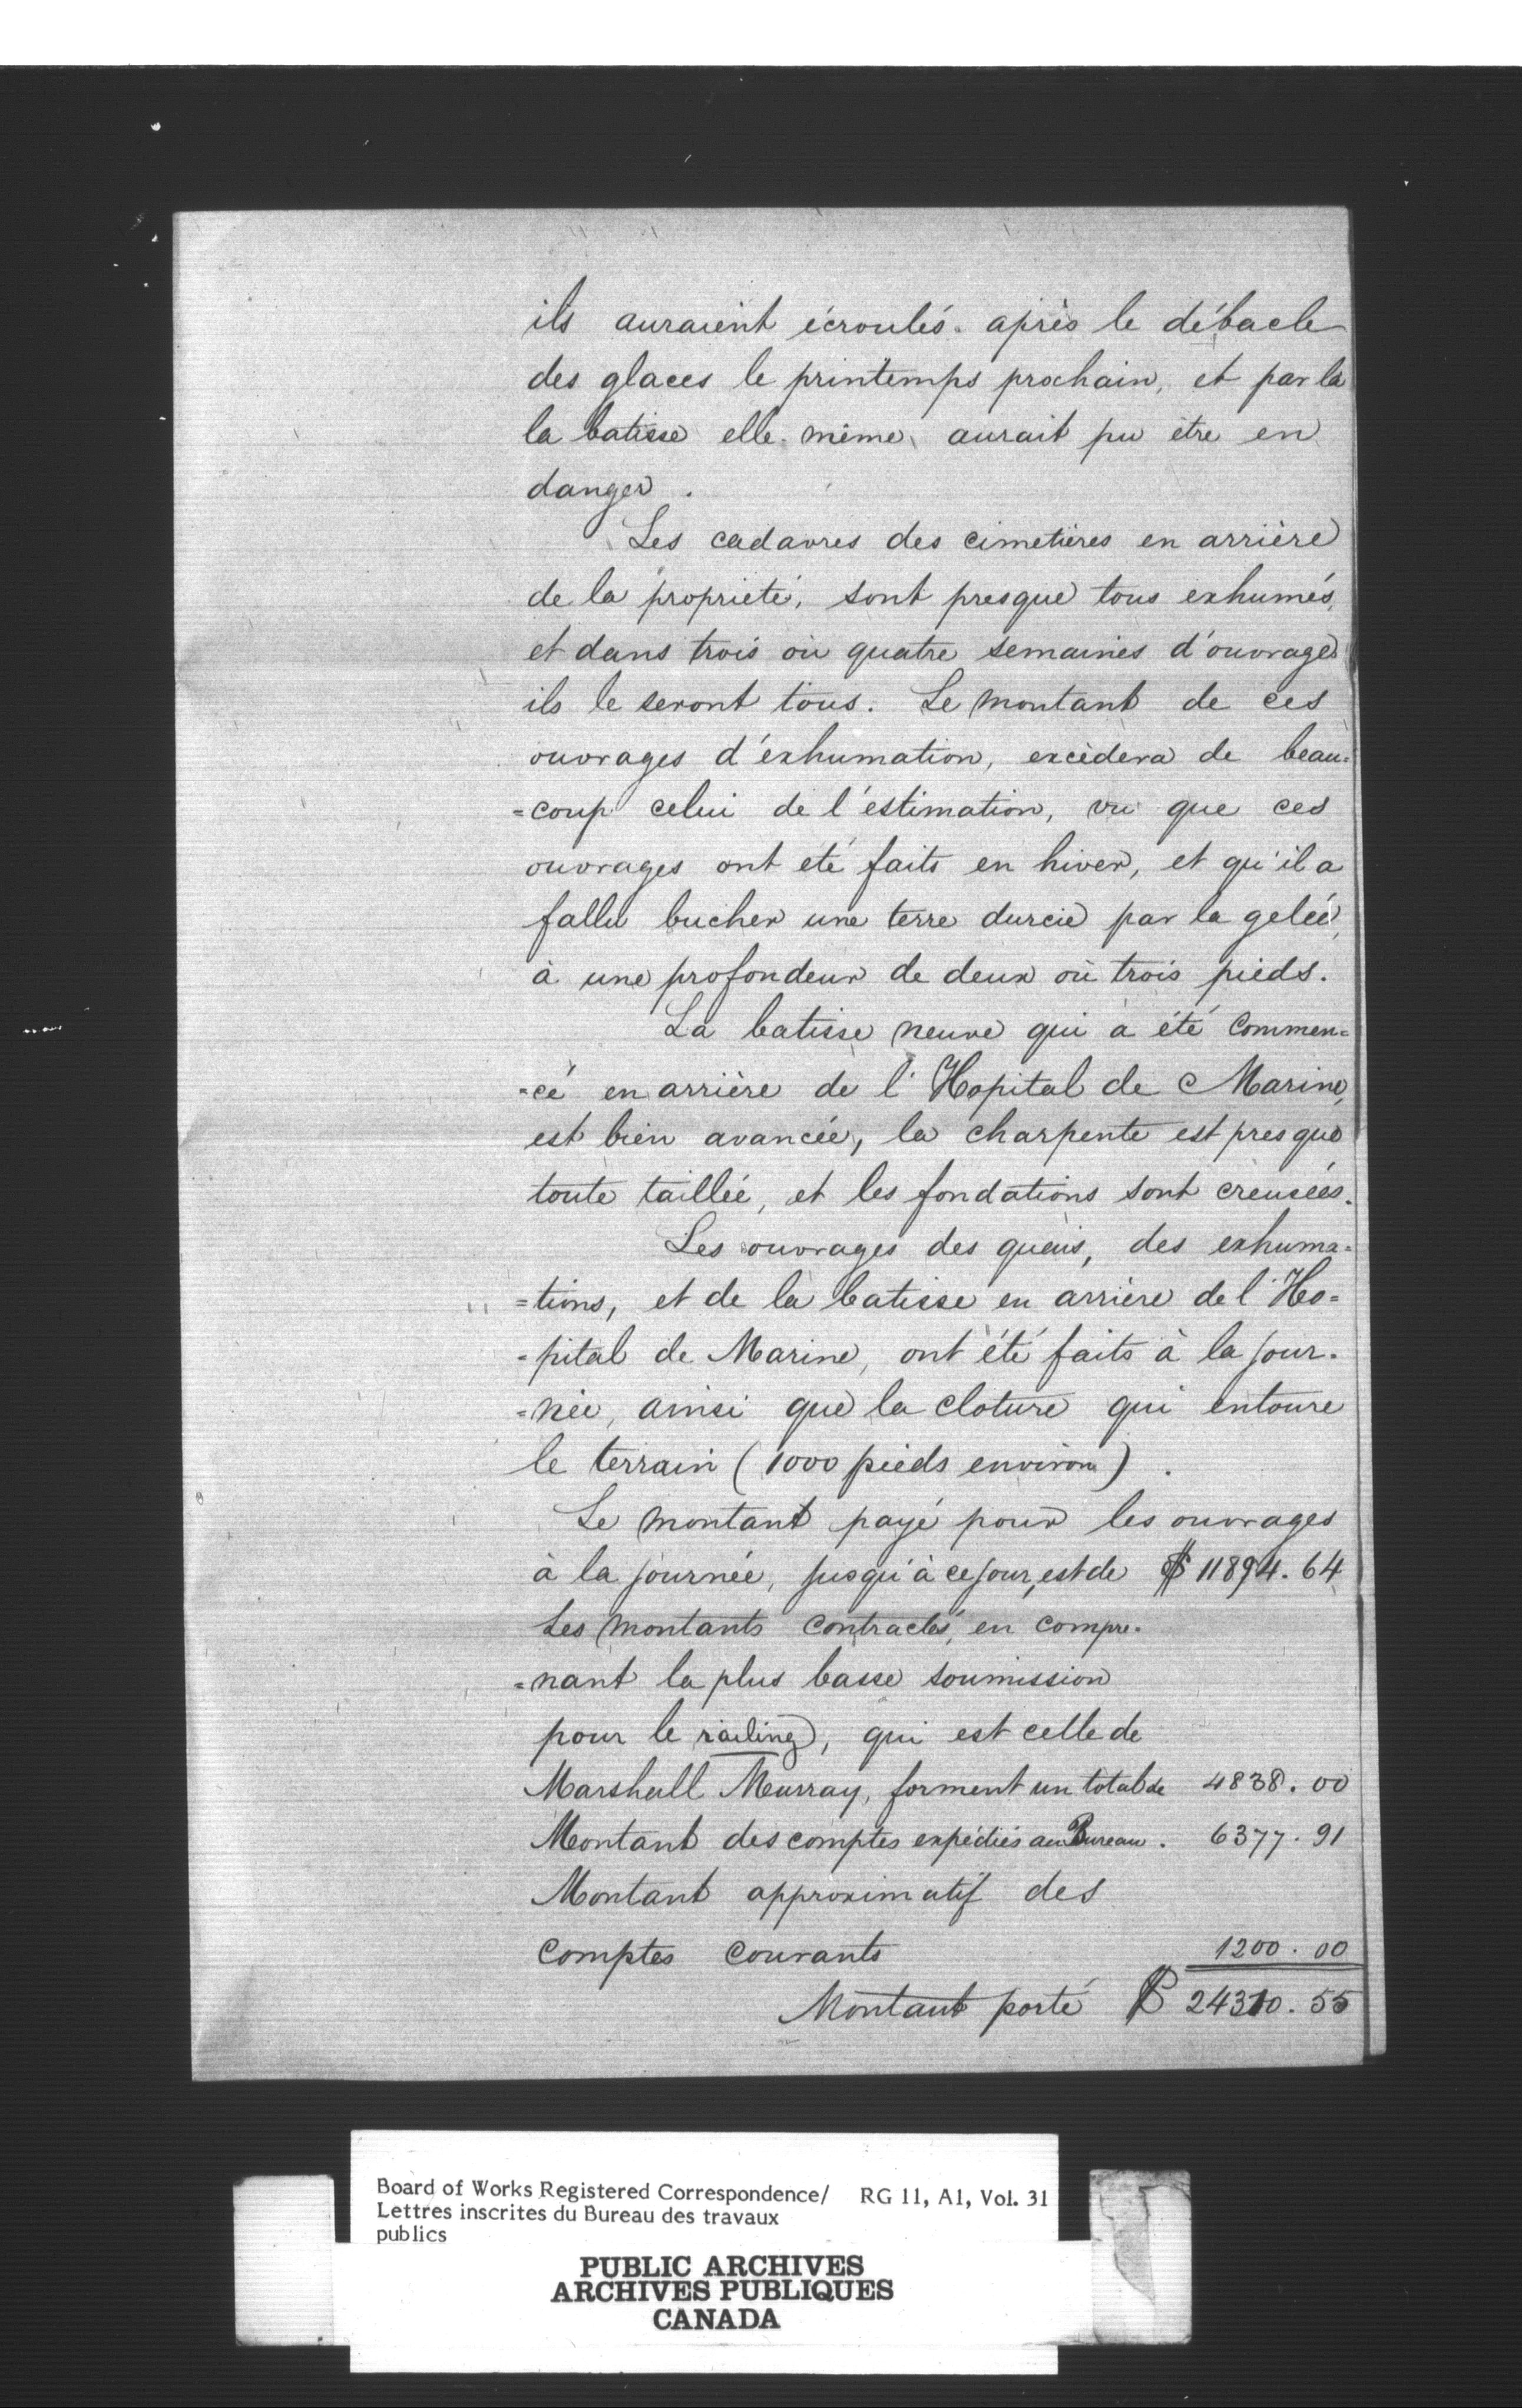 ils auraient écroulés. après le débacle
des glaces le printemps prochain, et par la
la batisse elle même aurait pu être en
danger.
Les cadavres des cimetières en arrière
de la propriété, sont presque tous exhumés,
et dans trois ou quatre semaines d'ouvrages
ils le seront tous. Le montant de ces
ouvrages d'exhumation, excèdera de beau=
=coup celui de l'estimation, vu que ces
ouvrages ont été faits en hiver, et qu'il a
fallu bucher une terre durcie par la gelée,
à une profondeur de deux où trois pieds.
La batisse neuve qui a été commen=
=cé en arrière de l'Hopital de Marine,
est bien avancée, la charpente est presque
toute taillée, et les fondations sont creusées.
Les ouvrages des quais, des exhuma=
=tions, et de la batisse en arrière de l'Ho=
=pital de Marine, ont été faits à la jour=
=née, ainsi que la cloture qui entoure
le terrain (1000 pieds environ).
Le montant payé pour les ouvrages
à la journée, jusqu'à ce jour, est de $ 11894.64
Les montants contractés, en compre=
=nant la plus basse soumission
pour le railing, qui est celle de
Marshall Murray, forment un total de 4838.00
Montant des comptes expédiés au Bureau. 6377.91
Montant approximatif des
comptes courants 1200.00
Montant porté $ 24310.55
Board of Works Registered Correspondence/ RG 11, A1, Vol. 31
Lettres inscrites du Bureau des travaux
publics
PUBLIC ARCHIVES
ARCHIVES PUBLIQUES
CANADA